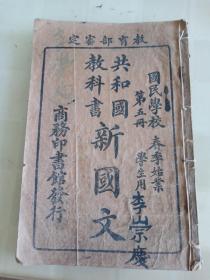 教育部審定
國民學校
春季始業
學生用
第五冊
李崇
共和國
教科書
新國文
商務印書館發行